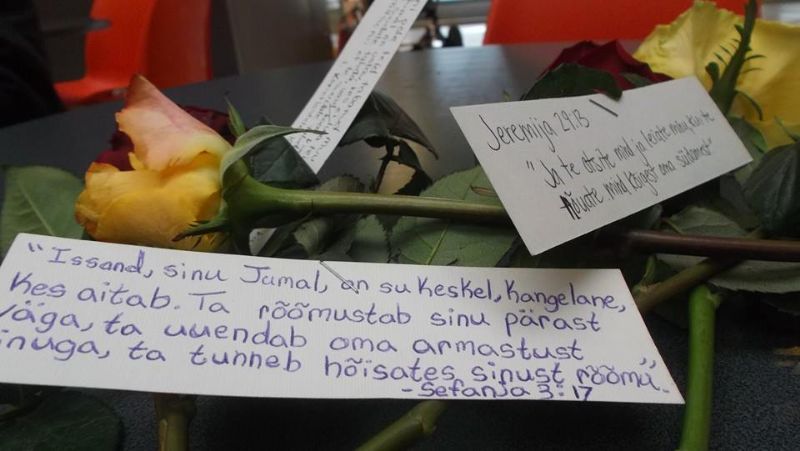 Jeremija 29:13
"Ja te otsite mind ja leiate minu, kui te
nõuate mind kõigest oma südamest"
"Issand, sinu Jumal, on su keskel, kangelane,
kes aitab. Ta rõõmustab sinu pärast
väga, ta uuendab oma armastust
inuga, ta tunneb hõisates sinust rõõmu."
-Sefanja 3:17